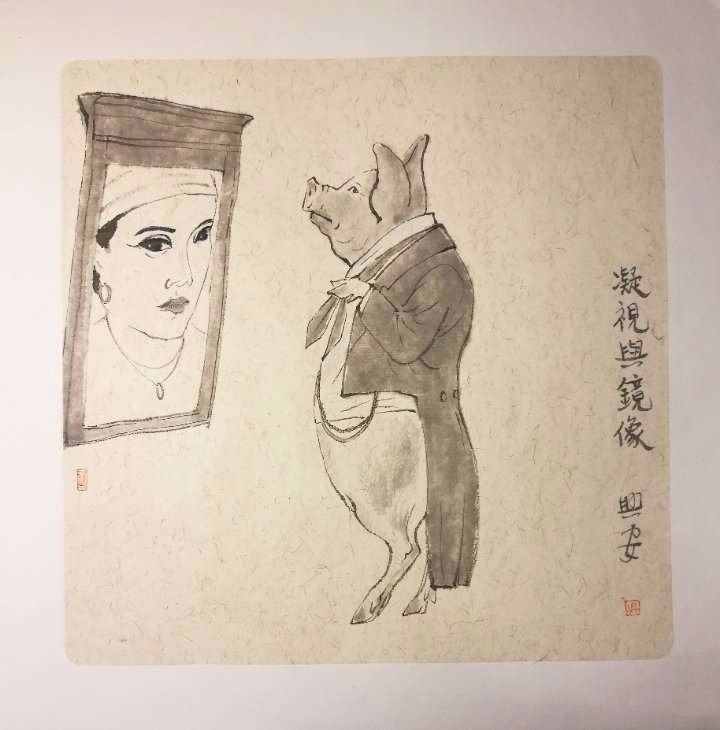 凝視與鏡像
興安